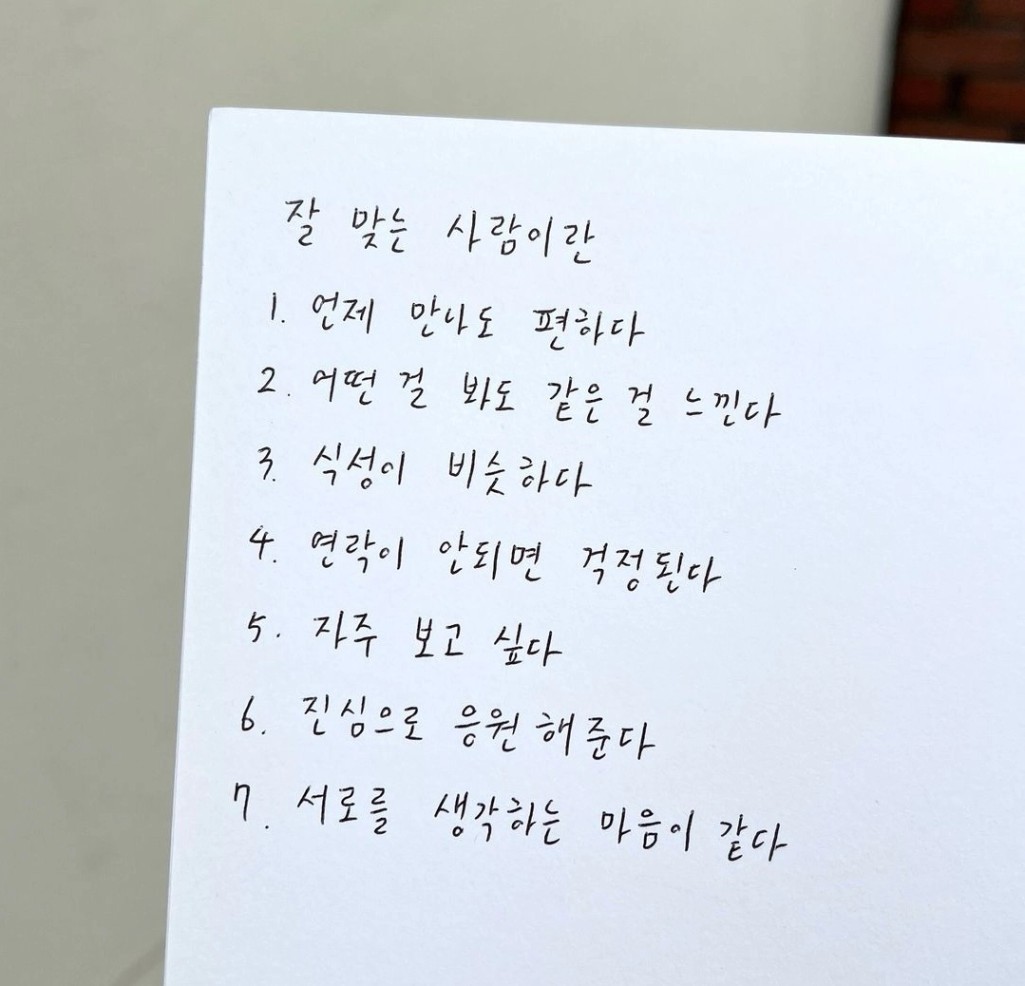 잘 맞는 사람이란
1. 언제 만나도 편하다
2. 어떤 걸 봐도 같은 걸 느낀다
3. 식성이 비슷하다
4. 연락이 안되면 걱정된다
5. 자주 보고 싶다
6. 진심으로 응원해준다
7. 서로를 생각하는 마음이 같다